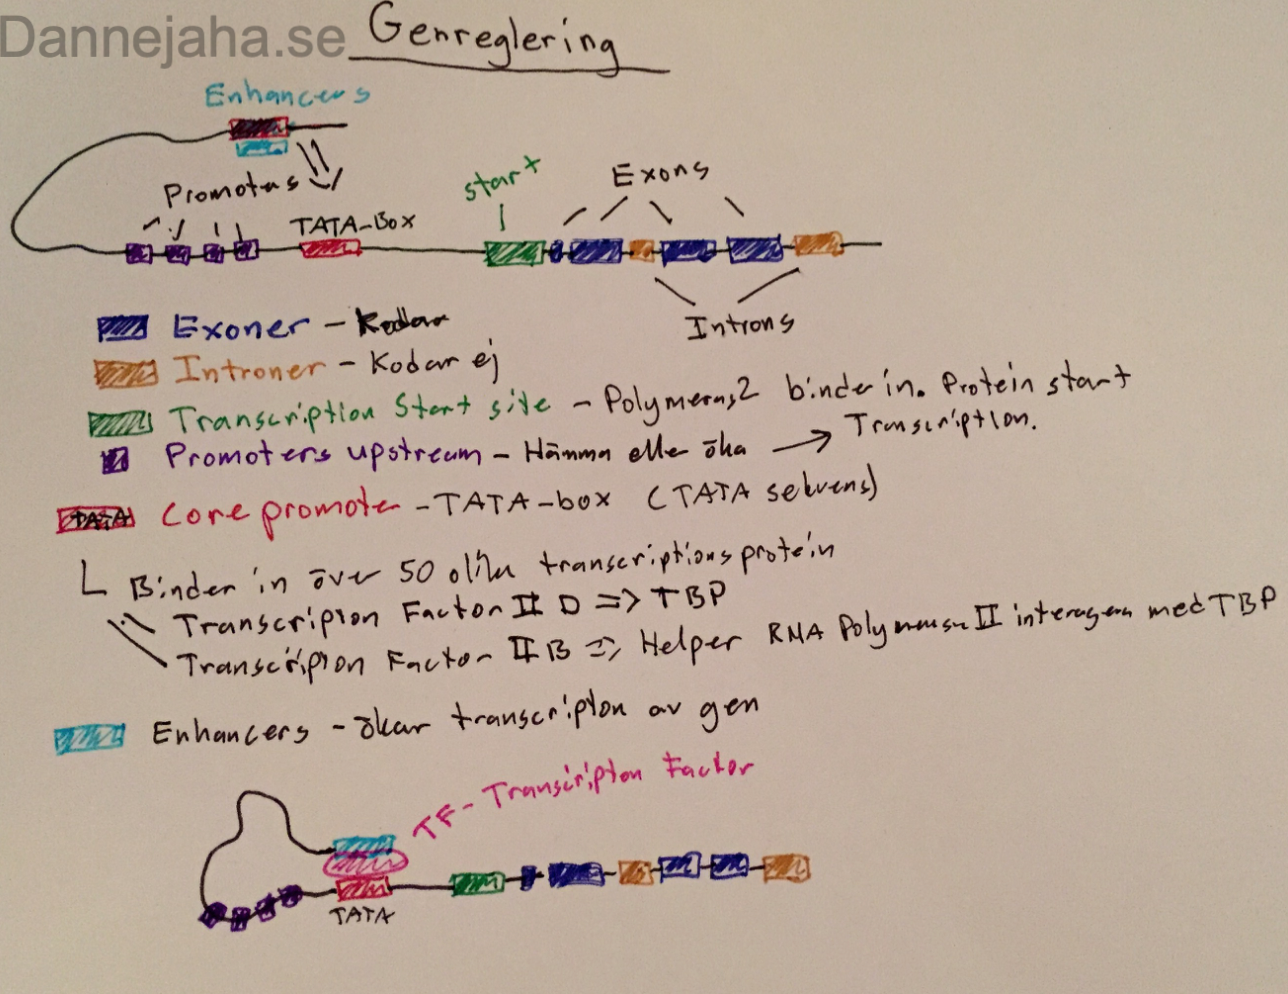 Dannejaha.se
Genreglering
Enhancers
Promoters
TATA-Box
start
Exons
Introns
Exoner - Kodar
Introner - Kodar ej
Transcription Start site - Polymeras2 binder in. Protein start
Transcription.
Promoters upstream - Hämma eller öka →
TATA Core promoter - TATA-box (TATA sekvens)
Binder in över 50 olika transcriptionsprotein
Transcription Factor II D => TBP
Transcription Factor II B => Helper RNA Polymerase II interagera med TBP
Enhancers - ökar transcription av gen
TF - Transcription Factor
TATA